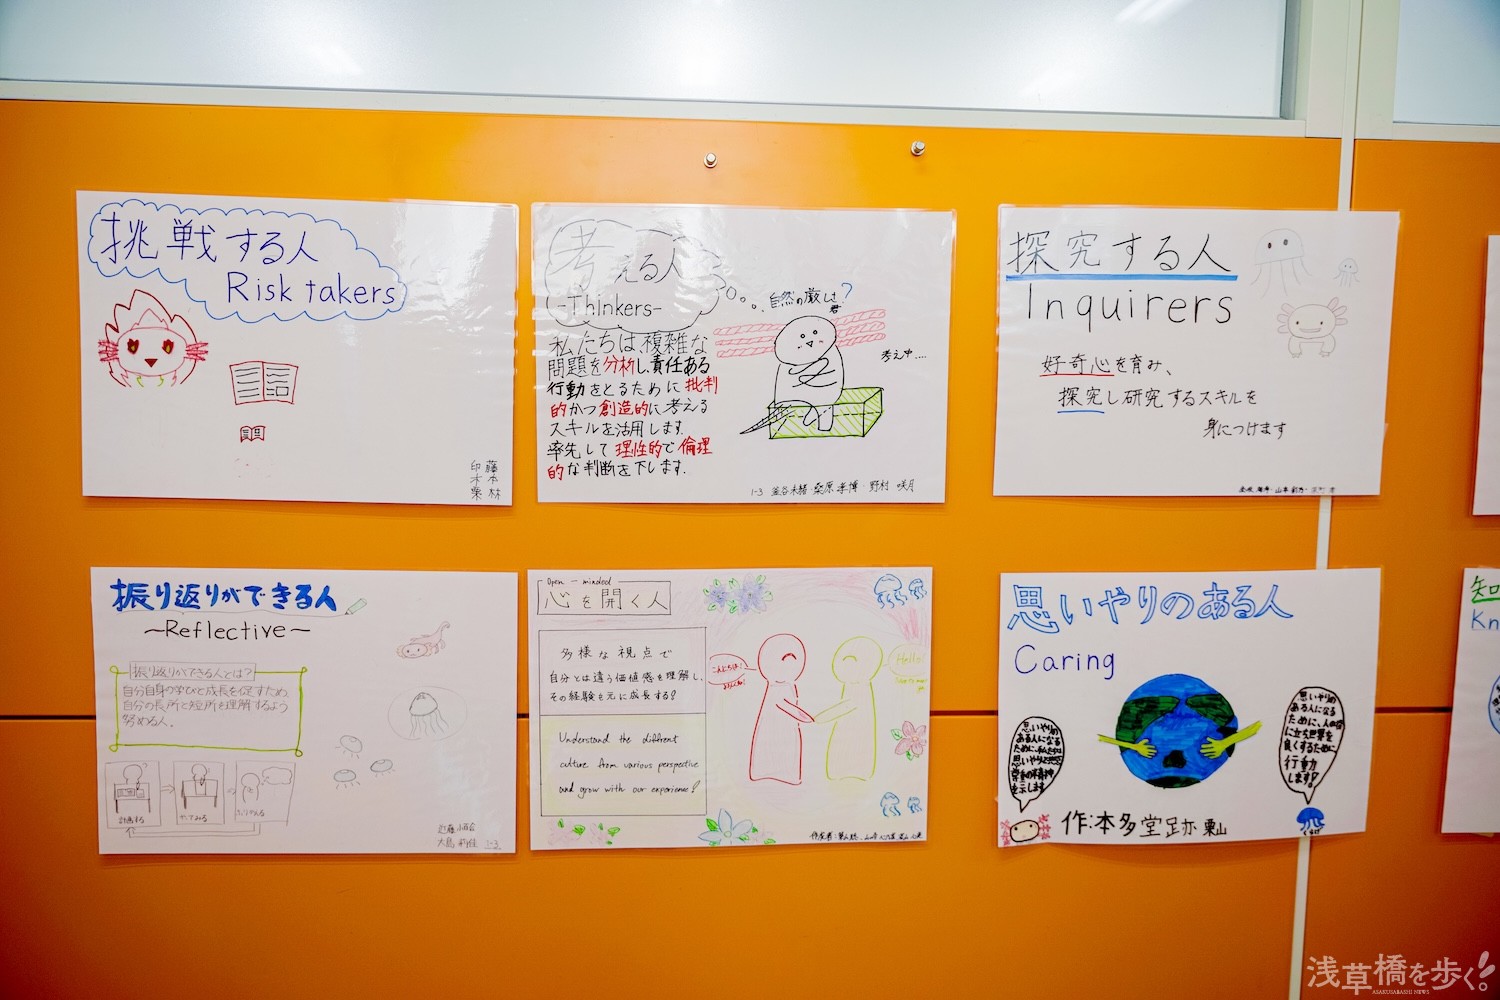 挑戦する人
Risk takers
藤本 林
印木 栗
考える人
-Thinkers-
自然の厳しさ?
考え中....
私たちは、複雑な
問題を分析し、責任ある
行動をとるために批判
的かつ創造的に考える
スキルを活用します.
率先して理性的で倫理
的な判断を下します.
1-3 釜谷未緒・桑原孝博・野村咲月
探究する人
Inquirers
好奇心を育み、
探究し研究するスキルを
身につけます
振り返りができる人
~Reflective~
振り返りができる人とは?
自分自身の学びと成長を促すため
自分の長所と短所を理解するよう
努める人.
計画する
やってみる
1-3
Open-minded
心を開く人
多様な視点で
自分とは違う価値感を理解し、
その経験を元に成長する?
Understand the diffrent
culture from various perspective
and grow with our experience?
こんにちは!
Hello!
思いやりのある人
Caring
思いやりの
ある人になる
ために、私たちは
思いやりと共感、
尊重の精神
を示します
思いやりの
ある人になる
ために、人の役
に立ち世界を
良くするために
行動
します!
くらげ
作:本多 堂跡 栗山
Kn
浅草橋を歩く。
ASAKUSABASHI NEWS